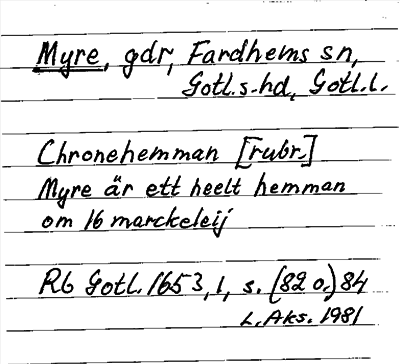 Myre, gdr, Fardhems sn,
Gotl.s.hd, Gotl.l.
Chronehemman [rubr.]
Myre är ett heelt hemman
om 16 marckeleij
Rb Gotl. 1653,1, s. (82 o.) 84
L. Aks. 1981